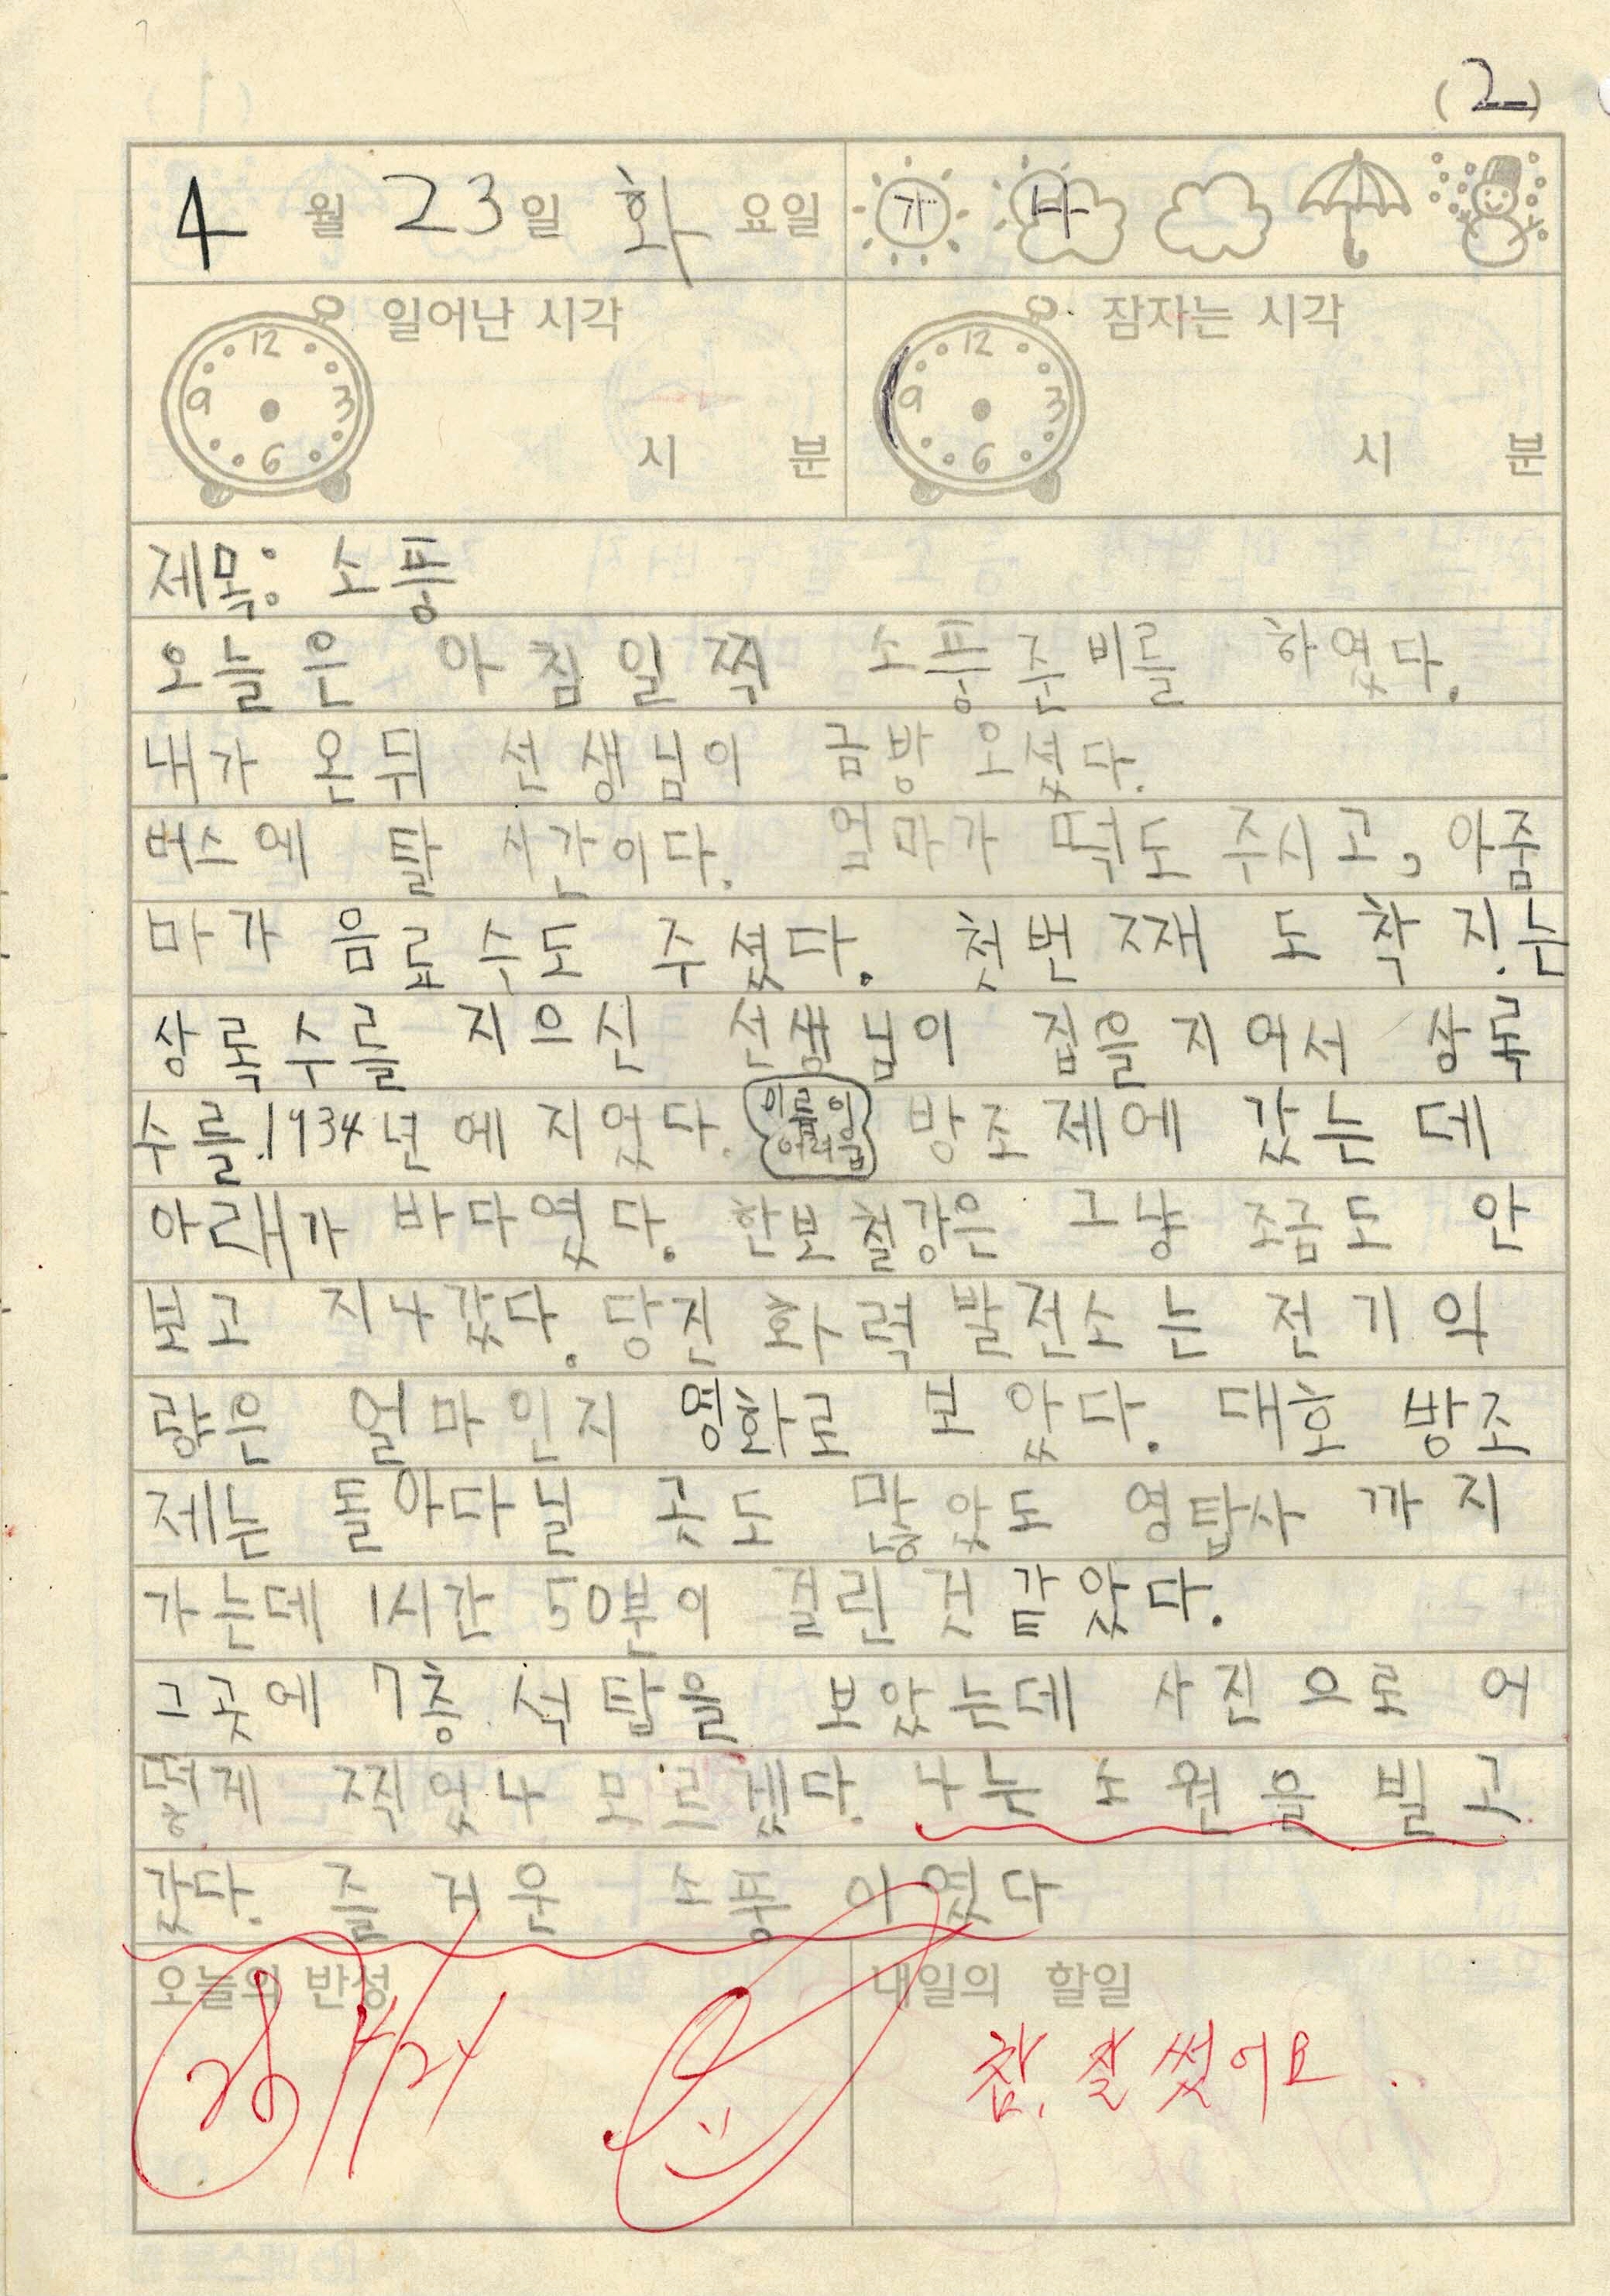 (2)
4 월 23 일 화 요일 가 나
일어난 시각 잠자는 시각
12 3 6 9 시 분 12 3 6 9 시 분
제목: 소풍
오늘은 아침일찍 소풍준비를 하였다.
내가 온뒤 선생님이 금방 오셨다.
버스에 탈 시간이다. 엄마가 떡도 주시고, 아줌
마가 음료수도 주셨다. 첫번째 도착지는
상록수를 지으신 선생님이 집을 지어서 상록
수를 1934년에 지었다. 이름이 어려움 방조제에 갔는데
아래가 바다였다. 한보철강은 그냥 조금도 안
보고 지나갔다. 당진 화력 발전소는 전기의
량은 얼마인지 영화로 보았다. 대호 방조
제는 돌아다닐 곳도 많았도 영탑사 까지
가는데 1시간 50분이 걸린것 같았다.
그곳에 7층 석탑을 보았는데 사진으로 어
떻게 찍었나 모르겠다. 나는 소원을 빌고
갔다. 즐거운 소풍이였다
오늘의 반성 내일의 할일
4/24
참, 잘 썼어요..